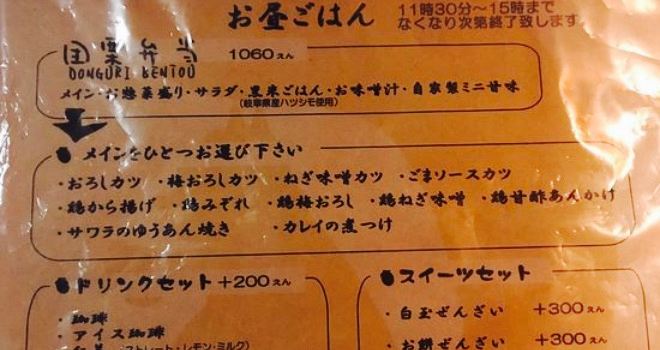 お昼ごはん
11時30分～15時まで
なくなり次第終了致します
団栗弁当 1060えん
DONGURI BENTOU
メイン・お惣菜盛り・サラダ・黒米ごはん・お味噌汁・自家製ミニ甘味
(岐阜県産ハツシモ使用)
メインをひとつお選び下さい
・おろしカツ ・梅おろしカツ ・ねぎ味噌カツ ・ごまソースカツ
・鶏から揚げ ・鶏みぞれ ・鶏梅おろし ・鶏ねぎ味噌 ・鶏甘酢あんかけ
・サワラのゆうあん焼き ・カレイの煮つけ
ドリンクセット +200えん
・珈琲
・アイス珈琲
ストレート・レモン・ミルク)
スイーツセット
・白玉ぜんざい +300えん
・お餅ぜんざい +300えん